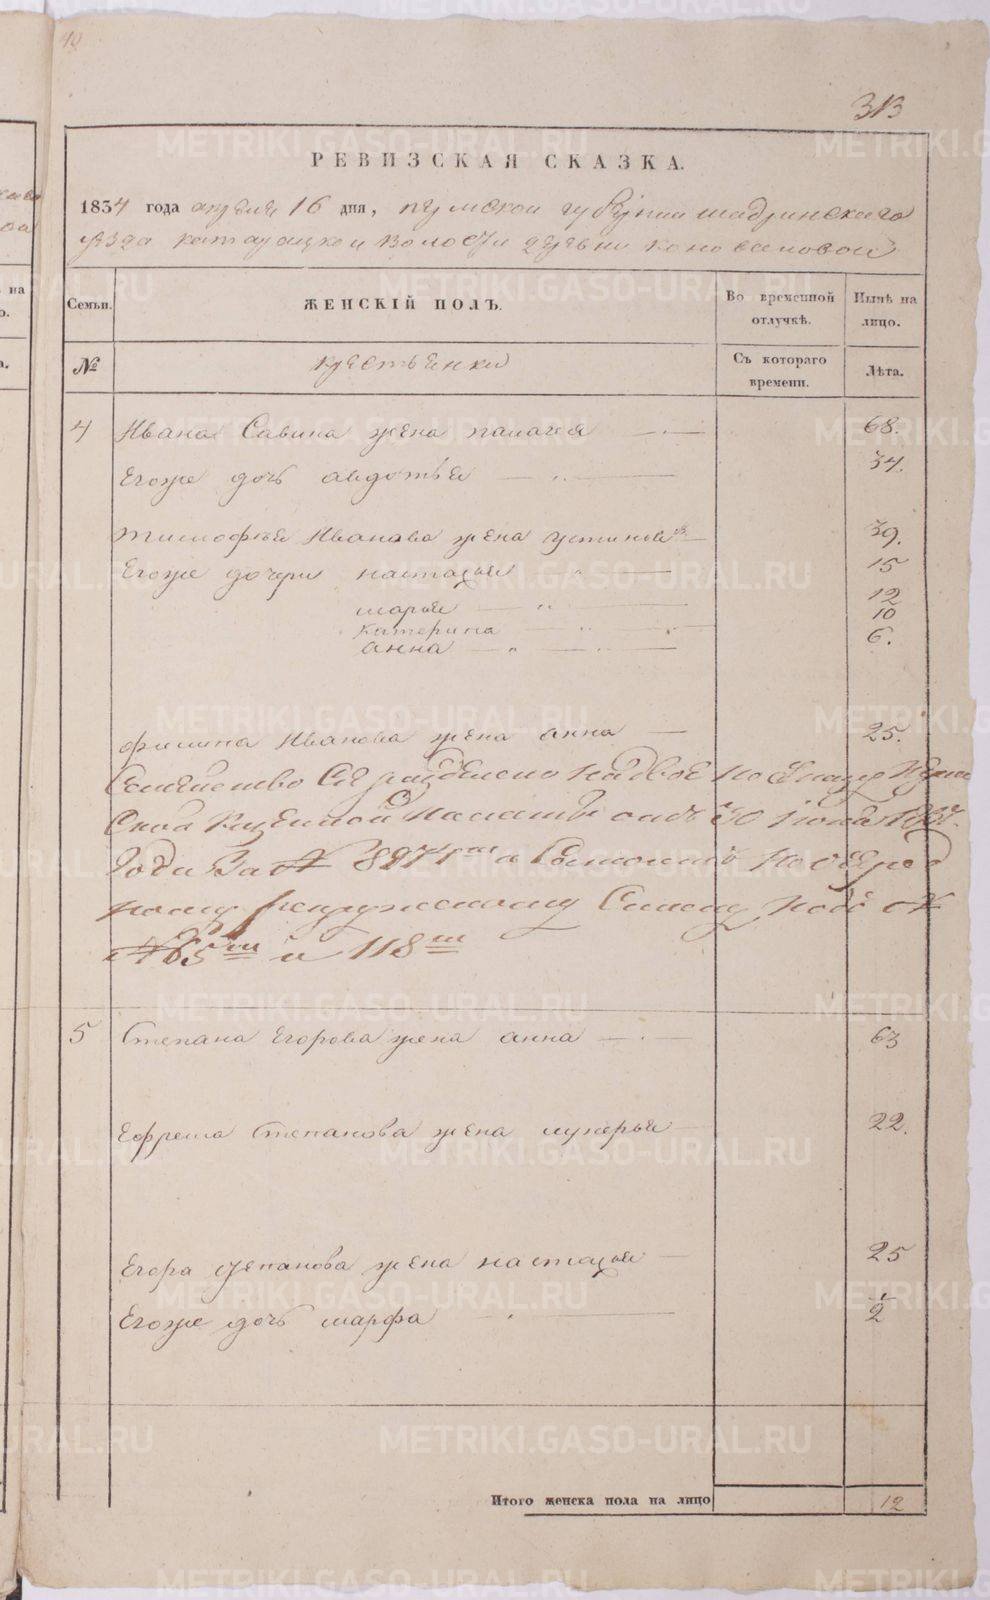 313
РЕВИЗСКАЯ СКАЗКА.
1834 года апреля 16 дня, пермской губернии шадринскаго
уезда катайцкой волости деревни коноваловой
Семьи. ЖЕНСКІЙ ПОЛЪ. Во временной отлучкѣ. Нынѣ на лицо.
№ крестьянки Съ котораго времени. Лѣта.
4 Ивана Савина жена палагея 68.
Егоже дочь авдотья 34.
тимофея Иванова жена устинья 39.
Егоже дочери настасья 15
марья 12
катерина 10
анна 6.
филипа Иванова жена анна 25.
Семейство Сіе разделено надвое по Указу Перм
Ской Казенной Палаты отъ 30
Года За № 8971м а Состоитъ по очеред
ному рекрутскому Списку подъ №
№ 65м и 118м
5 Степана Егорова жена анна 63
Ефрема Степанова жена лукерья 22.
Егора степанова жена настасья 25
Егоже дочь марфа 1/2
Итого женска пола на лицо 12
METRIKI.GASO-URAL.RU